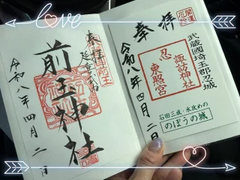 love
奉拝
前玉神社
令和八年四月二日
開運招福
奉拝
武蔵國埼玉郡忍城
諏訪神社
忍
東照宮
令和八年四月二日
石田三成・水攻めの
のぼうの城